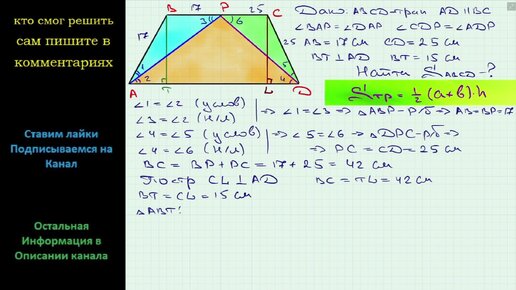 кто смог решить
сам пишите в
комментариях
Ставим лайки
Подписываемся на
Канал
Остальная
Информация в
Описании канала
B 17 P 25 C
17 3 6 25
1 2 5 4
A T L D
Дано: ABCD-трап AD || BC
∠BAP=∠DAP ∠CDP=∠ADP
AB=17см CD=25см
BT⊥AD BT=15см
Найти S ABCD-?
S тр = 1/2 (a+b)·h
∠1=∠2 (услов) | ⇒ ∠1=∠3 ⇒ △ABP-р/б ⇒ AB=BP=17
∠3=∠2 (н/л)
∠4=∠5 (услов) | ⇒ ∠5=∠6 ⇒ △DPC-рб ⇒
∠4=∠6 (н/л) ⇒ PC=CD=25см
BC=BP+PC=17+25=42см
Постр CL⊥AD BC=TL=42см
BT=CL=15см
△ABT: